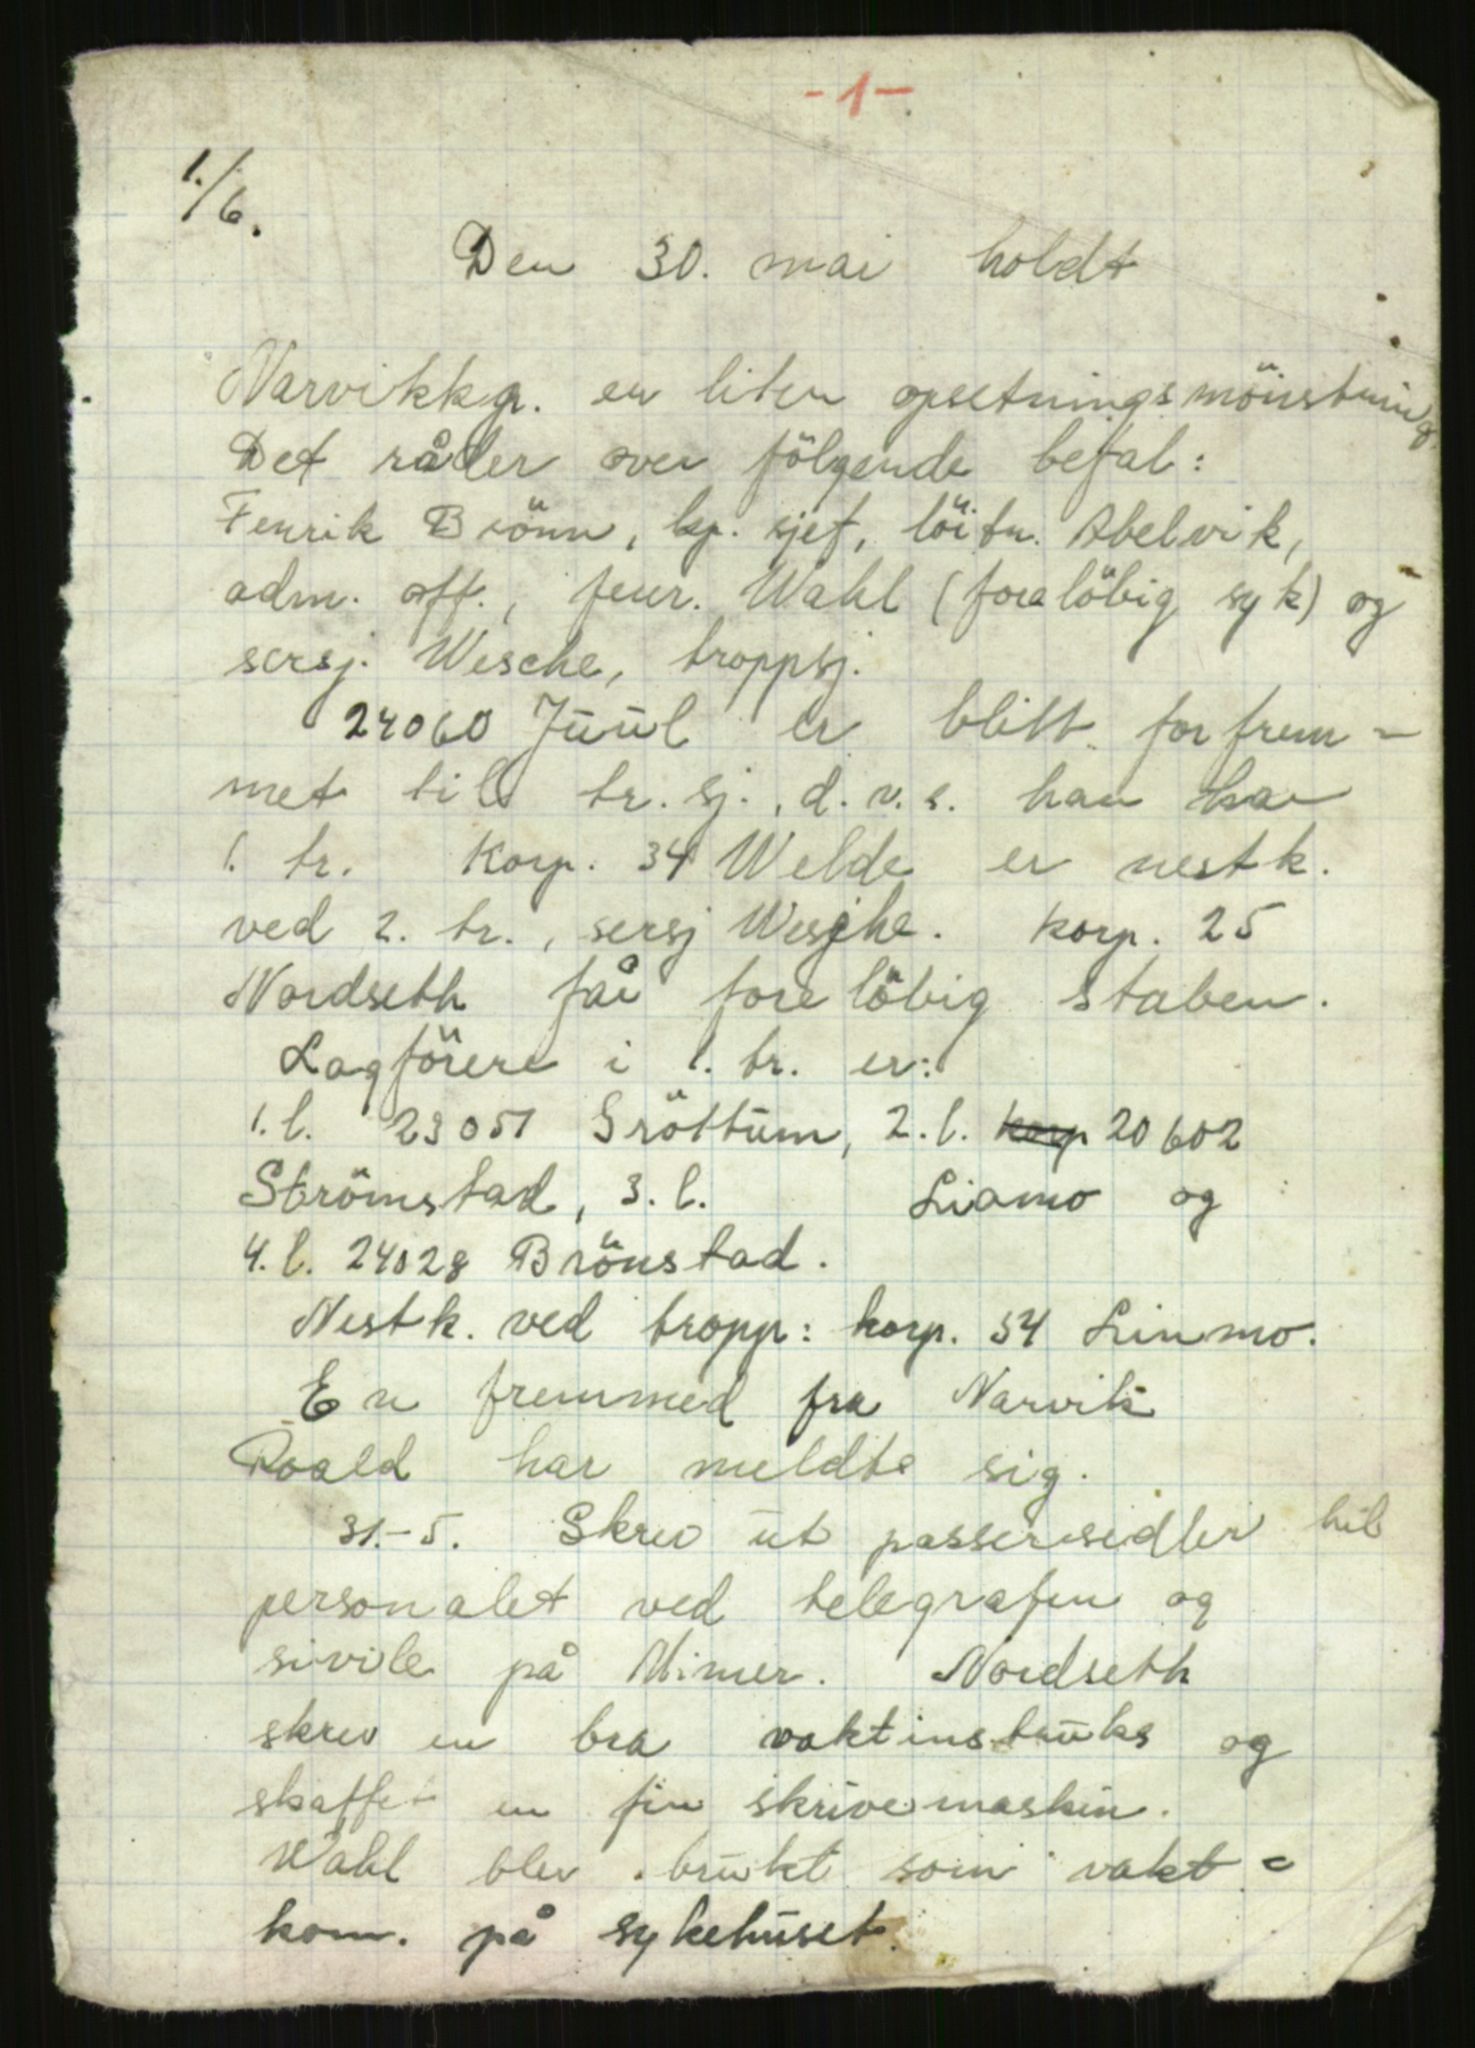 -1-
1./6.
Den 30. mai holdt
Narvikkp. en liten opsetningsmönstring.
Det råder over fölgende befal:
Fenrik Brönn, kp. sjef, löitn. Abelvik,
adm. off., fenr. Wahl (forelöbig syk) og
sersj. Wesche, troppsj.
24060 Juul er blitt forfrem-
met til tr. sj., d. v. s. han har
1. tr. Korp. 34 Welde er nestk.
ved 2. tr., sersj Wesche. Korp. 25
Nordseth får forelöbig staben.
Lagförere i 1. tr. er:
1. l. 23051 Gröttum, 2. l. korp 20602
Strömstad, 3. l. Liamo og
4. l. 24028 Brönstad.
Nestk. ved tropp: korp. 54 Linmo.
En fremmed fra Narvik
Roald har meldte sig.
31.-5. Skrev ut passersedler til
personalet ved telegrafen og
sivile på Mimer. Nordseth
skrev en bra vaktinstruks og
skaffet en fin skrivemaskin.
Wahl blev brukt som vakt-
kom. på sykehuset.